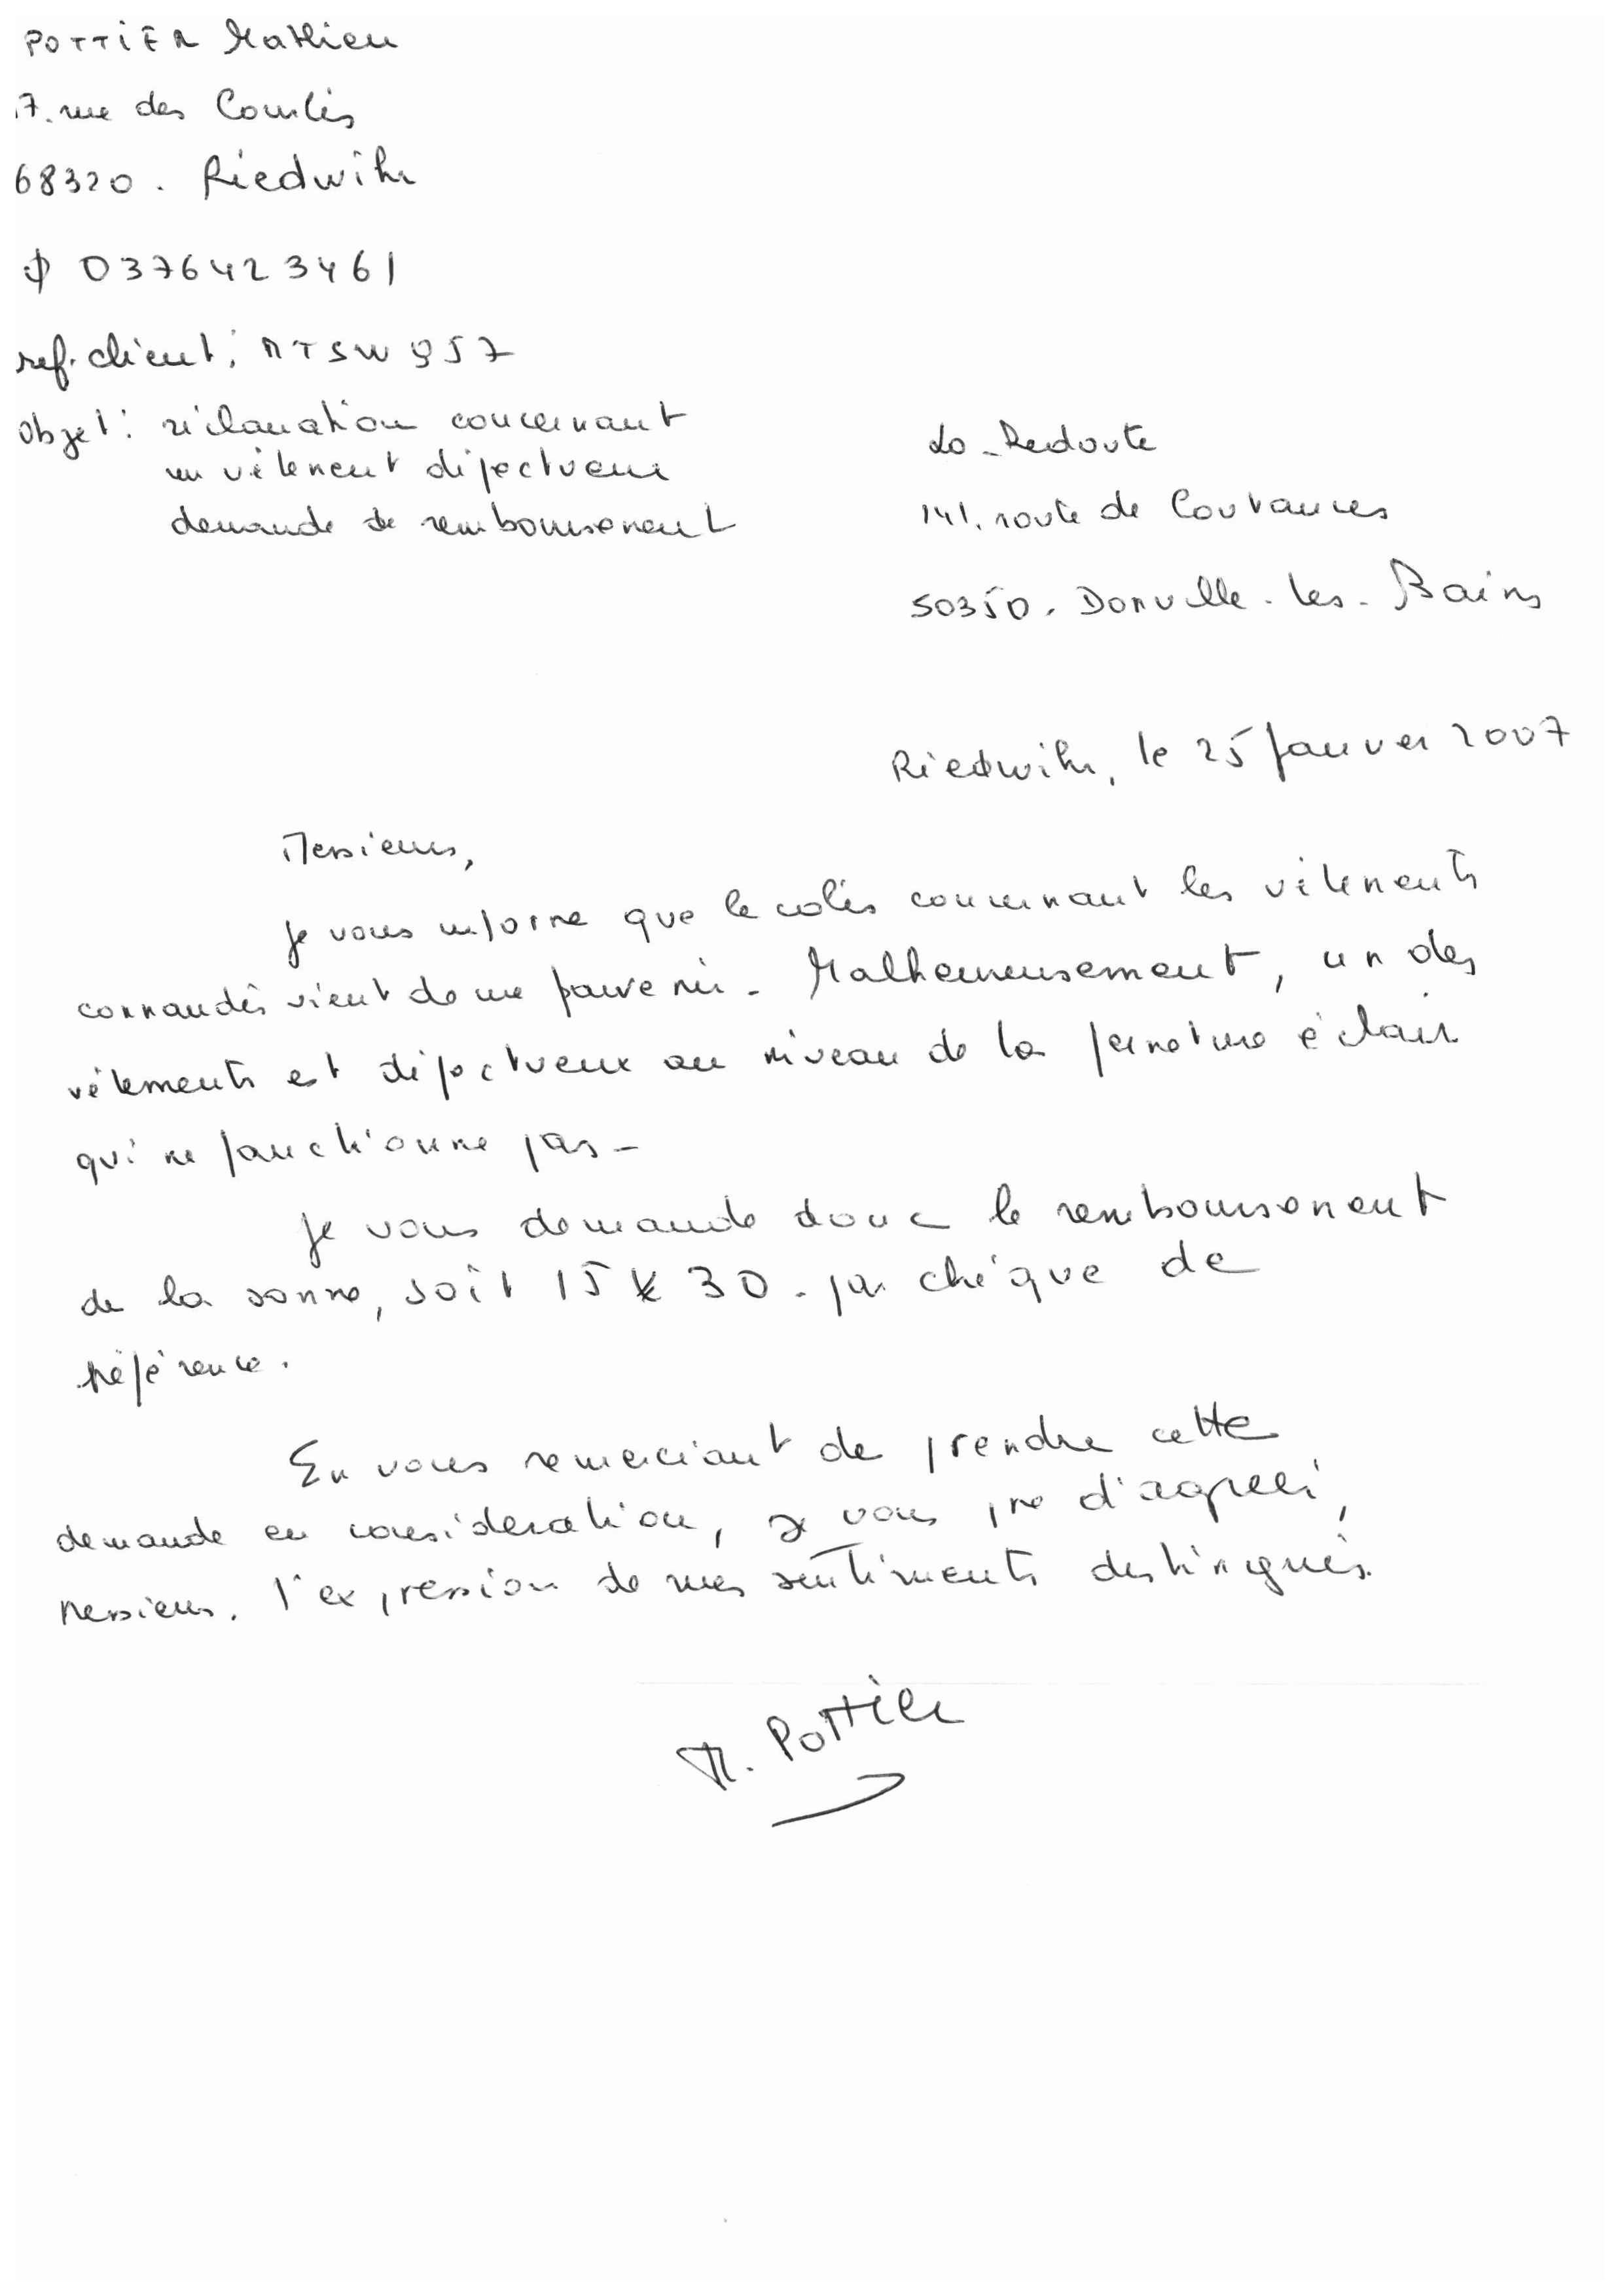 POTTIER Mathieu
17. rue des Courlis
68320. Riedwihr
0376423461
ref. client : MTSW957
Objet : réclamation concernant
un vêtement défectueux
demande de remboursement
La Redoute
141. route de Coutances
50350. Donville-les-Bains
Riedwihr, le 25 Janvier 2007
Messieurs,
Je vous informe que le colis concernant les vêtements
commandés vient de me parvenir. Malheureusement, un des
vêtements est défectueux au niveau de la fermeture éclair
qui ne fonctionne pas.
Je vous demande donc le remboursement
de la somme, soit 15 € 30. par chéque de
référence.
En vous remerciant de prendre cette
demande en consideration, je vous prie d'agréer,
Messieurs, l'expression de mes sentiments destingués.
M. Pottier